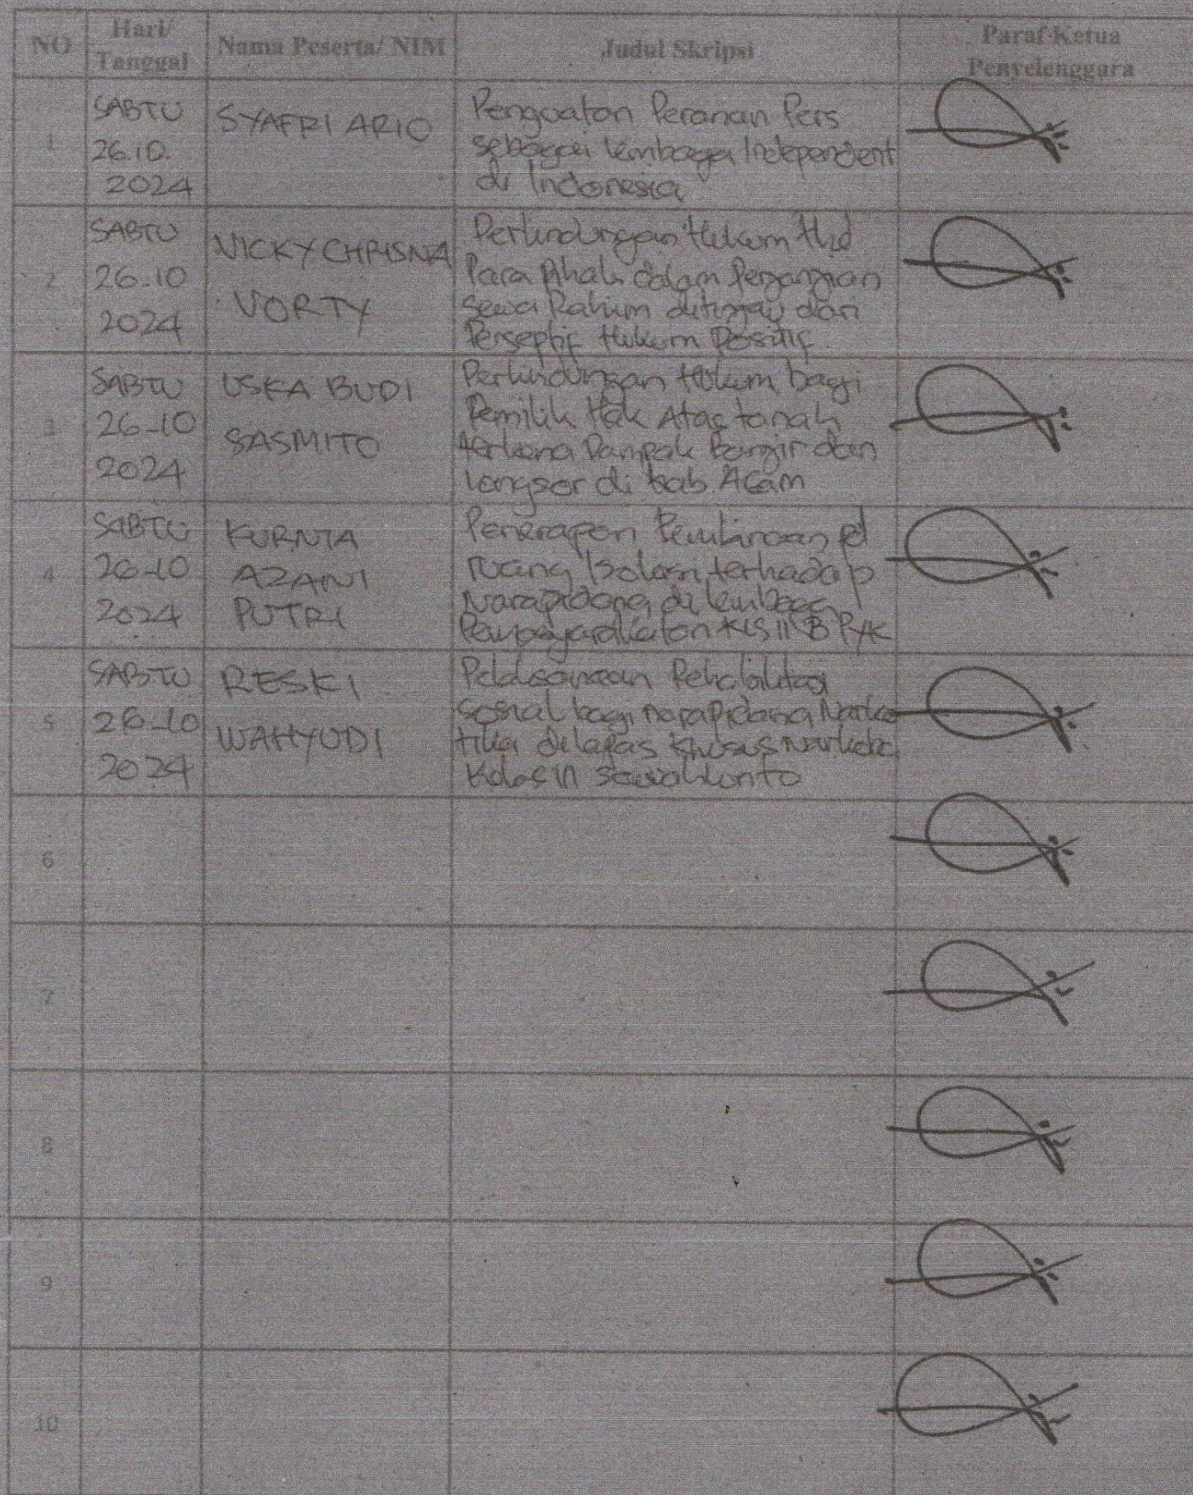 NO
Hari/
Tanggal
Nama Peserta/ NIM
Judul Skripsi
Paraf Ketua
Penyelenggara
1
SABTU
26.10.
2024
SYAFRI ARIO
Penguatan Peranan Pers
sebagai lembaga Independent
di Indonesia
2
SABTU
26-10
2024
NICKY CHRISNA
VORTY
Perlindungan Hukum thd
Para Pihak dalam Perjanjian
Sewa Rahim ditinjau dari
Perseptif Hukum Positif
3
SABTU
26-10
2024
USKA BUDI
SASMITO
Perlindungan Hukum bagi
Pemilik Hak Atas tanah
terkena Dampak Banjir dan
Longsor di kab. Agam
4
SABTU
26-10
2024
KURNIA
AZANI
PUTRI
Penerapan Pembinaan pd
ruang Isolasi terhadap
Narapidana di lembaga
Pemasyarakatan KLS II B PYK
5
SABTU
26-10
2024
RESKI
WAHYUDI
Pelaksanaan Rehabilitasi
Sosial bagi narapidana Narko
tika dilapas khusus Narkoba
Kelas III Sawahlunto
6
7
8
9
10